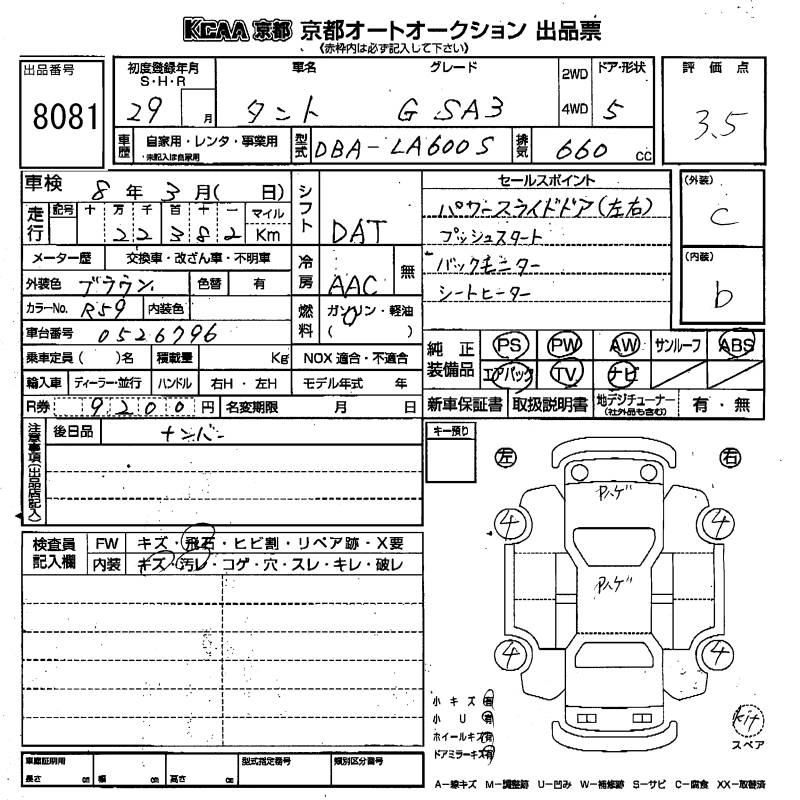 KCAA 京都 京都オートオークション 出品票
《赤枠内は必ず記入して下さい》
出品番号
8081
初度登録年月
S・H・R
29 月
車名
タント
グレード
G SA3
2WD
4WD
ドア・形状
5
評価点
3.5
車歴
自家用・レンタ・事業用
・未記入は自家用
型式
DBA-LA600S
排気
660 cc
車検
8年3月( 日)
走行
記号 十 万 千 百 十 一 マイル
22382 Km
シフト
DAT
メーター歴 交換車・改ざん車・不明車
外装色 ブラウン 色替 有
冷房
AAC 無
カラーNo. R59 内装色
燃料
ガソリン・軽油
( )
車台番号 0526796
乗車定員( )名 積載量 Kg NOX 適合・不適合
輸入車 ディーラー・並行 ハンドル 右H・左H モデル年式 年
R券 9200円 名変期限 月 日
セールスポイント
パワースライドドア(左右)
プッシュスタート
バックモニター
シートヒーター
(外装)
C
(内装)
b
純正装備品
PS PW AW サンルーフ ABS
エアバック TV ナビ
新車保証書 取扱説明書 地デジチューナー 有・無
(社外品も含む)
注意事項(出品店記入)
後日品 ナンバー
キー預り
左 右
Aハゲ
4 4
Aハゲ
4 4
検査員記入欄
FW キズ・飛石・ヒビ割・リペア跡・X要
内装 キズ・汚レ・コゲ・穴・スレ・キレ・破レ
小キズ 有
小U 有
ホイールキズ 有
ドアミラーキズ 有
kit
スペア
車庫証明用 型式指定番号 類別区分番号
長さ cm 幅 cm 高さ cm
A-線キズ M-調整跡 U-凹み W-補修跡 S-サビ C-腐食 XX-取替済